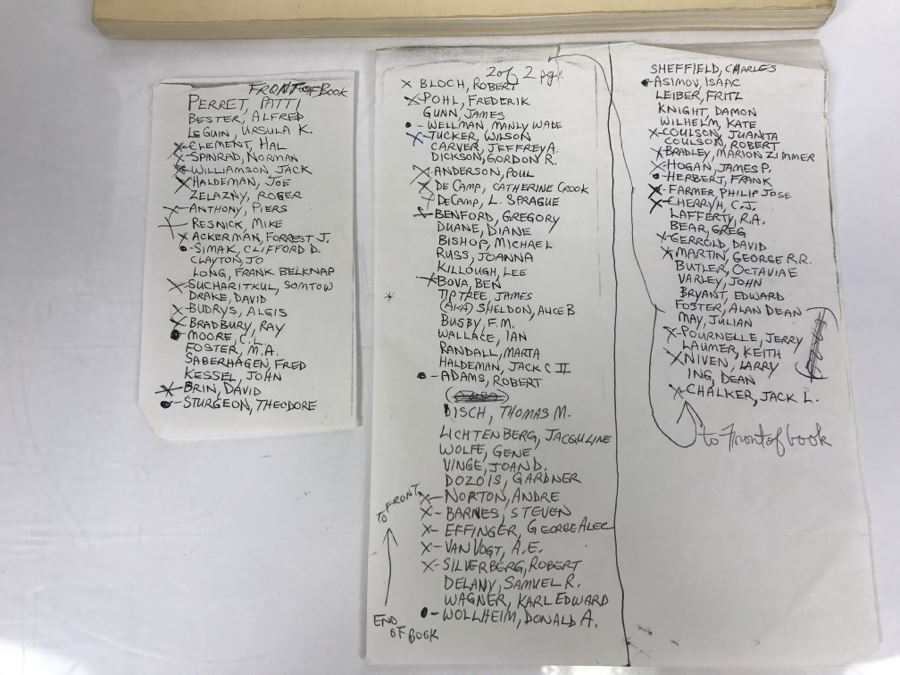 FRONT OF BOOK
PERRET, PATTI
BESTER, ALFRED
LeGUIN, URSULA K.
X-CLEMENT, HAL
X-SPINRAD, NORMAN
X-WILLIAMSON, JACK
X-HALDEMAN, JOE
ZELAZNY, ROGER
X-ANTHONY, PIERS
X-RESNICK, MIKE
X ACKERMAN, FORREST J.
•-SIMAK, CLIFFORD D.
CLAYTON, JO
LONG, FRANK BELKNAP
X-SUCHARITKUL, SOMTOW
DRAKE, DAVID
X-BUDRYS, ALGIS
X-BRADBURY, RAY
•-MOORE, C.L.
FOSTER, M.A.
SABERHAGEN, FRED
KESSEL, JOHN
X-BRIN, DAVID
•-STURGEON, THEODORE
2 of 2 pgs
X BLOCH, ROBERT
X-POHL, FREDERIK
GUNN, JAMES
•-WELLMAN, MANLY WADE
X-TUCKER, WILSON
CARVER, JEFFREY A.
DICKSON, GORDON R.
X-ANDERSON, POUL
X DE CAMP, CATHERINE CROOK
X DeCAMP, L. SPRAGUE
X-BENFORD, GREGORY
DUANE, DIANE
BISHOP, MICHAEL
RUSS, JOANNA
KILLOUGH, LEE
X-BOVA, BEN
* TIPTREE, JAMES
(AKA) SHELDON, ALICE B
BUSBY, F.M.
WALLACE, IAN
RANDALL, MARTA
HALDEMAN, JACK C. II
•-ADAMS, ROBERT
DISCH, THOMAS M.
LICHTENBERG, JACQULINE
WOLFE, GENE
VINGE, JOAN D.
DOZOIS, GARDNER
X-NORTON, ANDRE
X-BARNES, STEVEN
X-EFFINGER, GEORGE ALEC
X-VAN VOGT, A.E.
X-SILVERBERG, ROBERT
DELANY, SAMUEL R.
WAGNER, KARL EDWARD
•-WOLLHEIM, DONALD A.
TO FRONT
END
OF BOOK
SHEFFIELD, CHARLES
•-ASIMOV, ISAAC
LEIBER, FRITZ
KNIGHT, DAMON
WILHELM, KATE
X-COULSON, JUANITA
COULSON, ROBERT
X BRADLEY, MARION ZIMMER
X-HOGAN, JAMES P.
•-HERBERT, FRANK
X-FARMER PHILIP JOSE
X-CHERRYH, C.J.
LAFFERTY, R.A.
BEAR, GREG
X-GERROLD, DAVID
X MARTIN, GEORGE R.R.
BUTLER, OCTAVIA E
VARLEY, JOHN
BRYANT, EDWARD
FOSTER, ALAN DEAN
MAY, JULIAN
X-POURNELLE, JERRY
LAUMER, KEITH
X NIVEN, LARRY
ING, DEAN
X-CHALKER, JACK L.
to Front of book